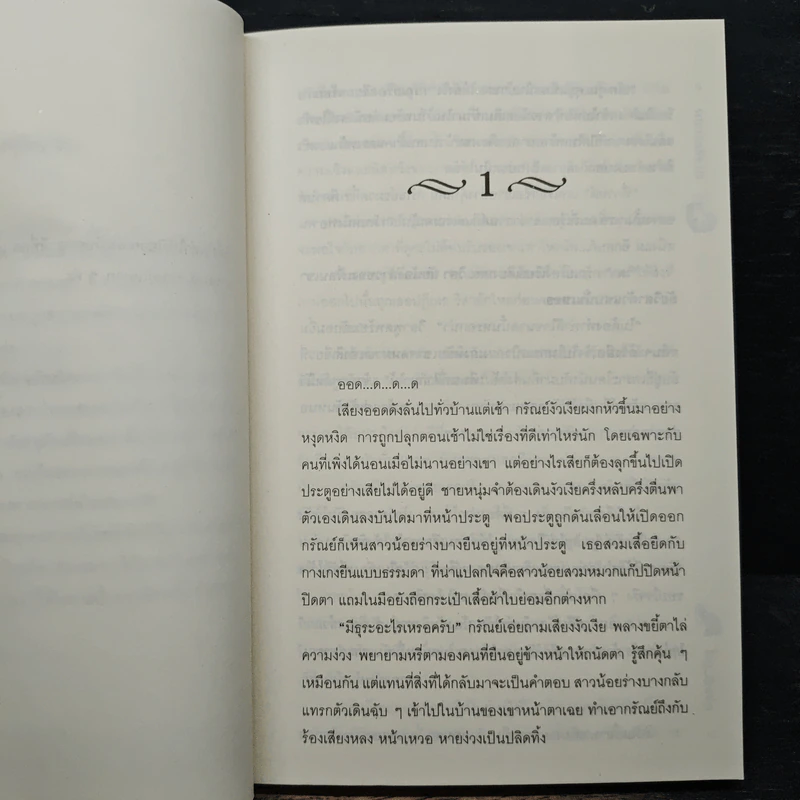 1
ออด...ด...ด...ด
เสียงออดดังลั่นไปทั่วบ้านแต่เช้า กรัณย์งัวเงียผงกหัวขึ้นมาอย่าง
หงุดหงิด การถูกปลุกตอนเช้าไม่ใช่เรื่องที่ดีเท่าไหร่นัก โดยเฉพาะกับ
คนที่เพิ่งได้นอนเมื่อไม่นานอย่างเขา แต่อย่างไรเสียก็ต้องลุกขึ้นไปเปิด
ประตูอย่างเสียไม่ได้อยู่ดี ชายหนุ่มจำต้องเดินงัวเงียครึ่งหลับครึ่งตื่นพา
ตัวเองเดินลงบันไดมาที่หน้าประตู พอประตูถูกดันเลื่อนให้เปิดออก
กรัณย์ก็เห็นสาวน้อยร่างบางยืนอยู่ที่หน้าประตู เธอสวมเสื้อยืดกับ
กางเกงยีนแบบธรรมดา ที่น่าแปลกใจคือสาวน้อยสวมหมวกแก๊ปปิดหน้า
ปิดตา แถมในมือยังถือกระเป๋าเสื้อผ้าใบย่อมอีกต่างหาก
“มีธุระอะไรเหรอครับ” กรัณย์เอ่ยถามเสียงงัวเงีย พลางขยี้ตาไล่
ความง่วง พยายามหรี่ตามองคนที่ยืนอยู่ข้างหน้าให้ถนัดตา รู้สึกคุ้น ๆ
เหมือนกัน แต่แทนที่สิ่งที่ได้กลับมาจะเป็นคำตอบ สาวน้อยร่างบางกลับ
แทรกตัวเดินฉับ ๆ เข้าไปในบ้านของเขาหน้าตาเฉย ทำเอากรัณย์ถึงกับ
ร้องเสียงหลง หน้าเหวอ หายง่วงเป็นปลิดทิ้ง